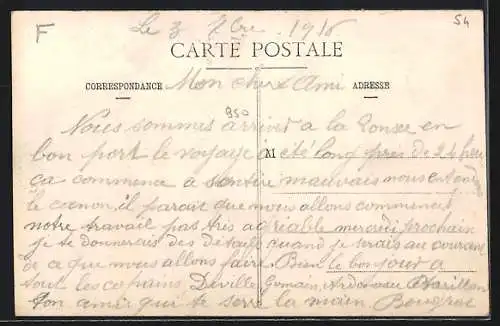 F
Le 3 7bre 1916
54
CARTE POSTALE
CORRESPONDANCE Mon cher Ami ADRESSE
950
Nous sommes arrivés a la en
bon port le voyage a été long près de 24 heu
M
ça commence a sentire mauvais nous
le canon, il parait que nous allons commencer
notre travail pas très agréable mercredi prochain
je te donnerais des détails quand je serais au courant
a ce que nous allons faire. Bien le bonjour a
tout les copains, Deville
Ton ami qui te serre la main